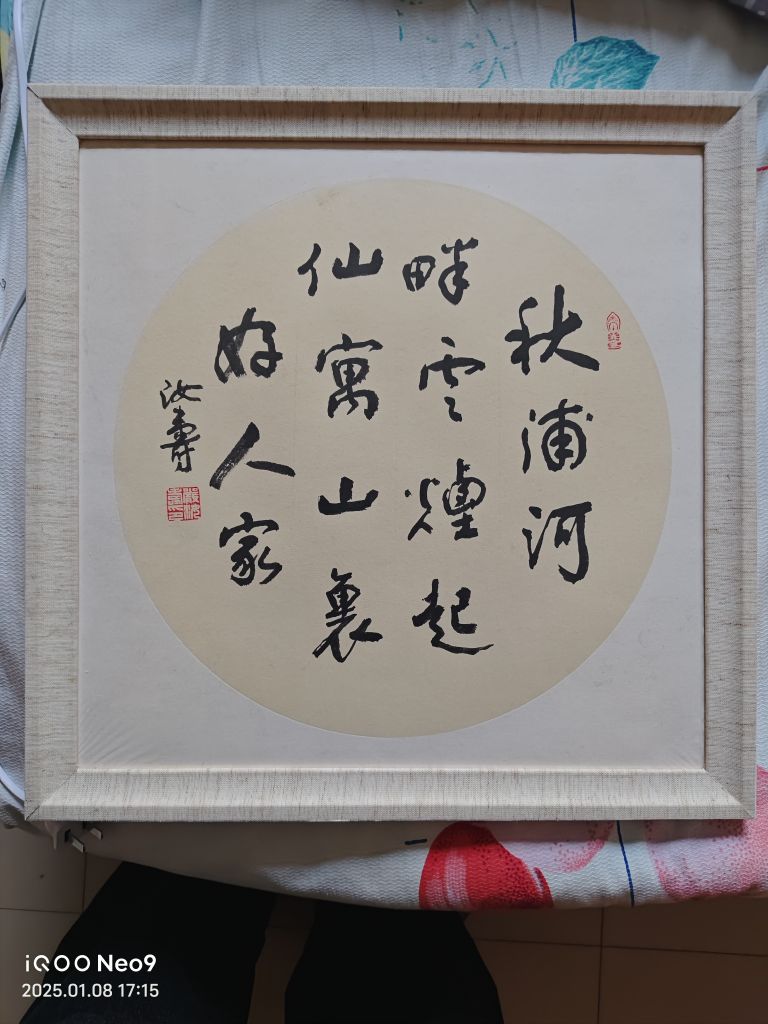 秋浦河
畔雲煙起
仙寓山裏
好人家
汝壽
iQOO Neo9
2025.01.08 17:15